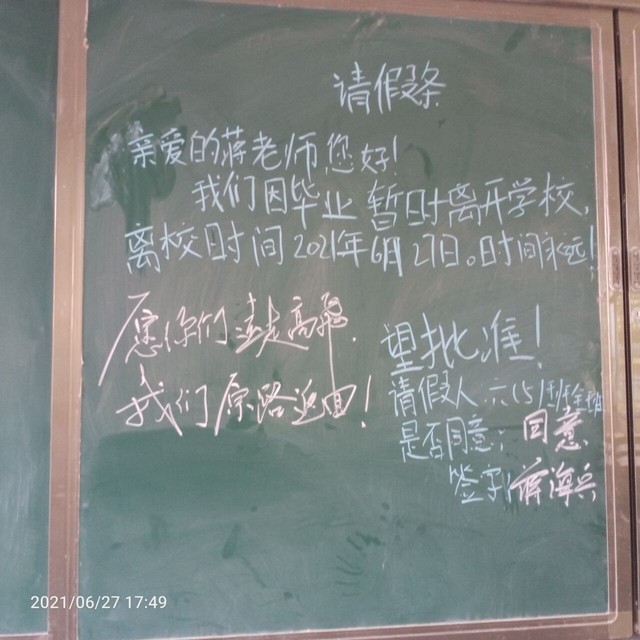 请假条
亲爱的蒋老师您好!
我们因毕业 暂时离开学校,
离校时间2021年6月27日。时间永远!
望批准!
请假人 六(5)班全体
是否同意: 同意
签字 蒋海兵
愿你们远走高飞.
我们原路返回!
2021/06/27 17:49